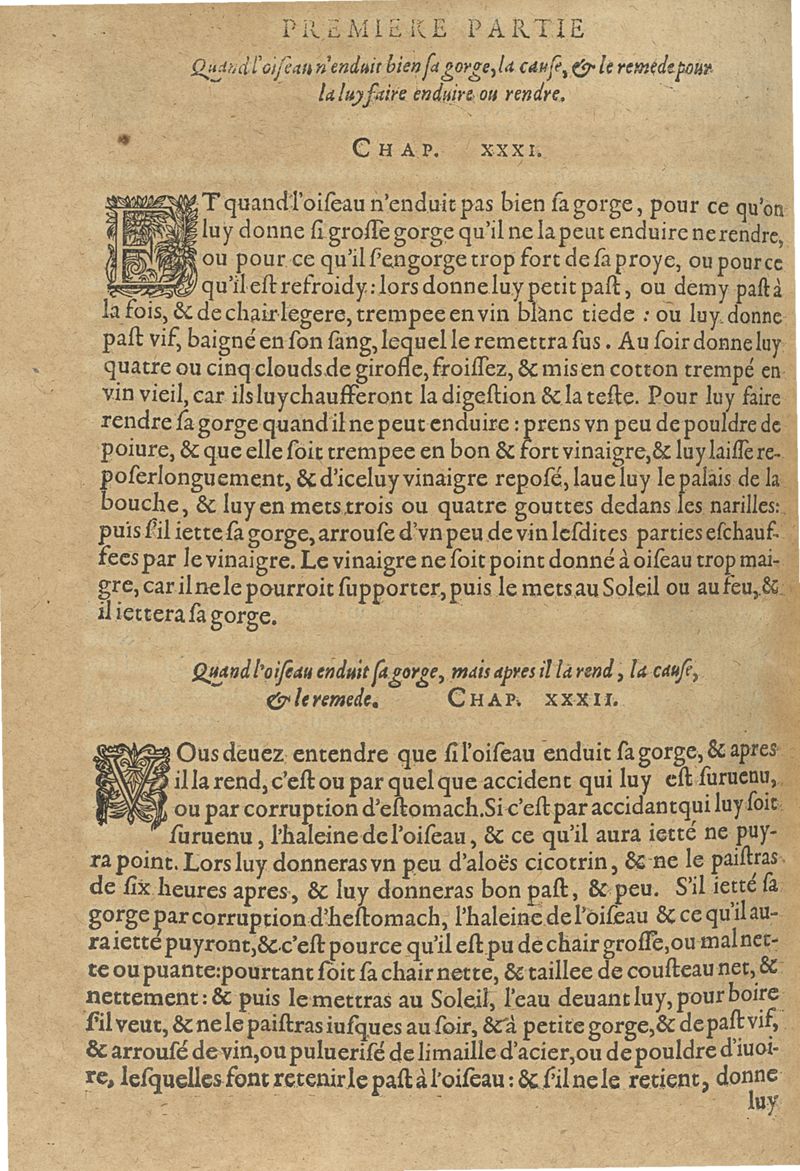 PREMIERE PARTIE
Quand l'oiſeau n'enduit bien ſa gorge, la cauſe, & le remede pour
la luy faire enduire ou rendre.
CHAP. XXXI.
ET quand l'oiſeau n'enduit pas bien ſa gorge, pour ce qu'on
luy donne ſi groſſe gorge qu'il ne la peut enduire ne rendre,
ou pour ce qu'il ſ'engorge trop fort de ſa proye, ou pour ce
qu'il eſt refroidy: lors donne luy petit paſt, ou demy paſt à
la fois, & de chair legere, trempee en vin blanc tiede : ou luy donne
paſt vif, baigné en ſon ſang, lequel le remettra ſus. Au ſoir donne luy
quatre ou cinq clouds de girofle, froiſſez, & mis en cotton trempé en
vin vieil, car ils luy chaufferont la digeſtion & la teſte. Pour luy faire
rendre ſa gorge quand il ne peut enduire : prens vn peu de pouldre de
poiure, & que elle ſoit trempee en bon & fort vinaigre, & luy laiſſe re-
poſer longuement, & d'iceluy vinaigre repoſé, laue luy le palais de la
bouche, & luy en mets trois ou quatre gouttes dedans les narilles:
puis ſ'il iette ſa gorge, arrouſe d'vn peu de vin leſdites parties eſchauf-
fees par le vinaigre. Le vinaigre ne ſoit point donné à oiſeau trop mai-
gre, car il ne le pourroit ſupporter, puis le mets au Soleil ou au feu, &
il iettera ſa gorge.
Quand l'oiſeau enduit ſa gorge, mais apres il la rend, la cauſe,
& le remede. CHAP. XXXII.
VOus deuez entendre que ſi l'oiſeau enduit ſa gorge, & apres
il la rend, c'eſt ou par quelque accident qui luy eſt ſuruenu,
ou par corruption d'eſtomach. Si c'eſt par accidant qui luy ſoit
ſuruenu, l'haleine de l'oiſeau, & ce qu'il aura ietté ne puy-
ra point. Lors luy donneras vn peu d'aloës cicotrin, & ne le paiſtras
de ſix heures apres, & luy donneras bon paſt, & peu. S'il ietté ſa
gorge par corruption d'heſtomach, l'haleine de l'oiſeau & ce qu'il au-
ra ietté puyront, & c'eſt pource qu'il eſt pu de chair groſſe, ou mal net-
te ou puante: pourtant ſoit ſa chair nette, & taillee de couſteau net, &
nettement: & puis le mettras au Soleil, l'eau deuant luy, pour boire
ſ'il veut, & ne le paiſtras iuſques au ſoir, & à petite gorge, & de paſt vif,
& arrouſé de vin, ou puluerisé de limaille d'acier, ou de pouldre d'iuoi-
re, leſquelles font retenir le paſt à l'oiſeau: & ſ'il ne le retient, donne
luy